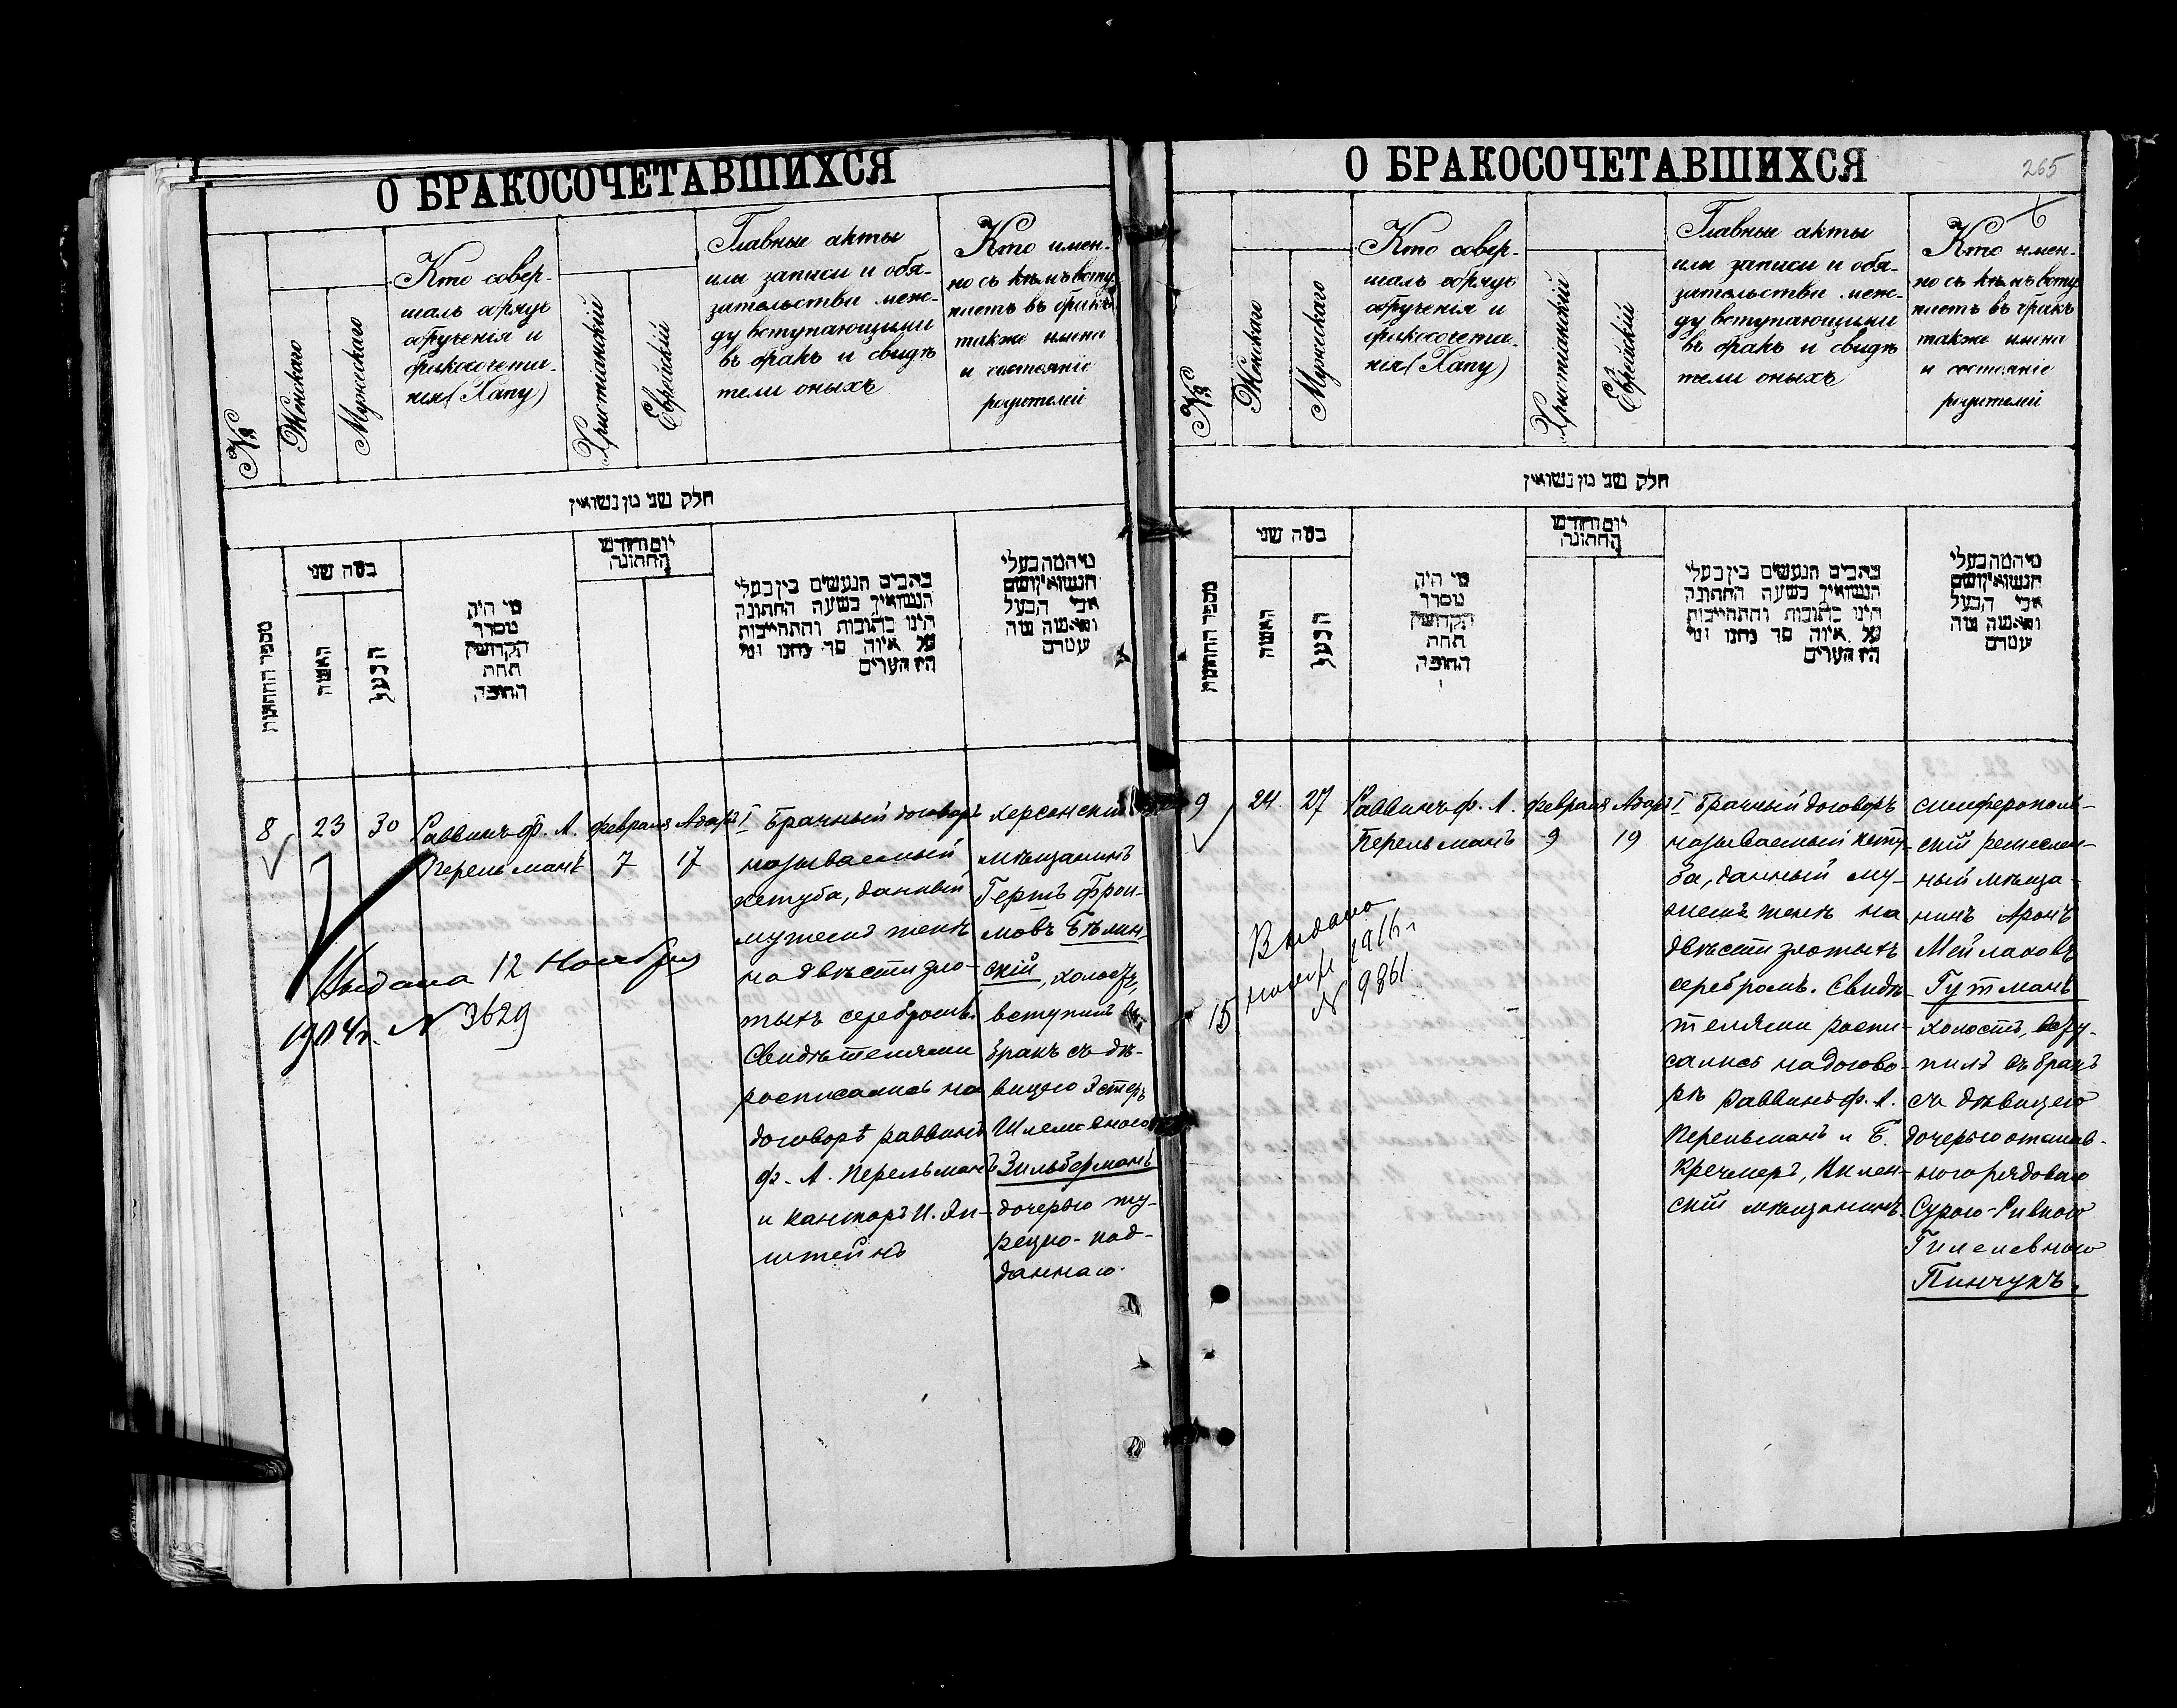 О БРАКОСОЧЕТАВШИХСЯ
№
Женскаго
Мужескаго
Кто совер-
шалъ обрядъ
обрученія и
бракосочета-
нія (Хапу)
Христіанскій
Еврейскій
Главные акты
или записи и обя-
зательства меж-
ду вступающими
въ бракъ и свидѣ
тели оныхъ
Кто имен-
но съ кѣмъ всту
паетъ въ бракъ
также имена
и состояніе
родителей
חלק שני מן נשואין
מספר החתונות
במה שני
האשה
הבעל
מי היה
מסדר
הקדושין
תחת
החופה
יום וחודש
החתונה
כתבים הנעשים בין בעלי
הנשואין בשעה החתונה
היינו כתובות והתחייבות
על איזה סך נתנו ומי
היו העדים
מי המה בעלי
הנשואין ושם
אבי הבעל
והאשה ומה
8
23
30
Раввинъ Ф. Л.
Перельманъ
Февраля
7
Адаръ I
17
Брачный договоръ
называемый
кетуба, данный
мужемъ женѣ
на двѣсти зло-
тыхъ серебромъ.
Свидѣтелями
росписались на
договорѣ раввинъ
Ф. Л. Перельманъ
и канторъ И. Эп-
штейнъ
Херсонскій
мѣщанинъ
Гершъ Фрои-
мовъ Бѣлин-
скій, холостъ,
вступилъ въ
бракъ съ дѣ-
вицею Эстеръ
Шлемовною
Зильберманъ
дочерью ту-
рецко-под-
даннаго.
Выдана 12 Ноября
1904 г. N 3629
О БРАКОСОЧЕТАВШИХСЯ
265
6
№
Женскаго
Мужескаго
Кто совер-
шалъ обрядъ
обрученія и
бракосочета-
нія (Хапу)
Христіанскій
Еврейскій
Главные акты
или записи и обя-
зательства меж-
ду вступающими
въ бракъ и свидѣ
тели оныхъ
Кто имен-
но съ кѣмъ всту
паетъ въ бракъ
также имена
и состояніе
родителей
חלק שני מן נשואין
מספר החתונות
במה שני
האשה
הבעל
מי היה
מסדר
הקדושין
תחת
החופה
יום וחודש
החתונה
כתבים הנעשים בין בעלי
הנשואין בשעה החתונה
היינו כתובות והתחייבות
על איזה סך נתנו ומי
היו העדים
מי המה בעלי
הנשואין ושם
אבי הבעל
והאשה ומה
9
24
27
Раввинъ Ф. Л.
Перельманъ
Февраля
9
Адаръ I
19
Брачный договоръ
называемый кету-
ба, данный му-
жемъ женѣ на
двѣсти злотыхъ
серебромъ. Свидѣ-
телями роспи-
сались на догово-
рѣ раввинъ Ф. Л.
Перельманъ и Б.
Кречмеръ, Вилен-
скій мѣщанинъ.
симферополь-
скій ремеслен-
ный мѣща-
нинъ Аронъ
Мейлаховъ
Гутманъ
холостъ, всту-
пилъ въ бракъ
съ дѣвицею
дочерью отстав-
ного рядоваго
Сурою-Ривкою
Гилелевною
Пинчукъ.
Выдано
15 ноября 1916 г.
N 9861.